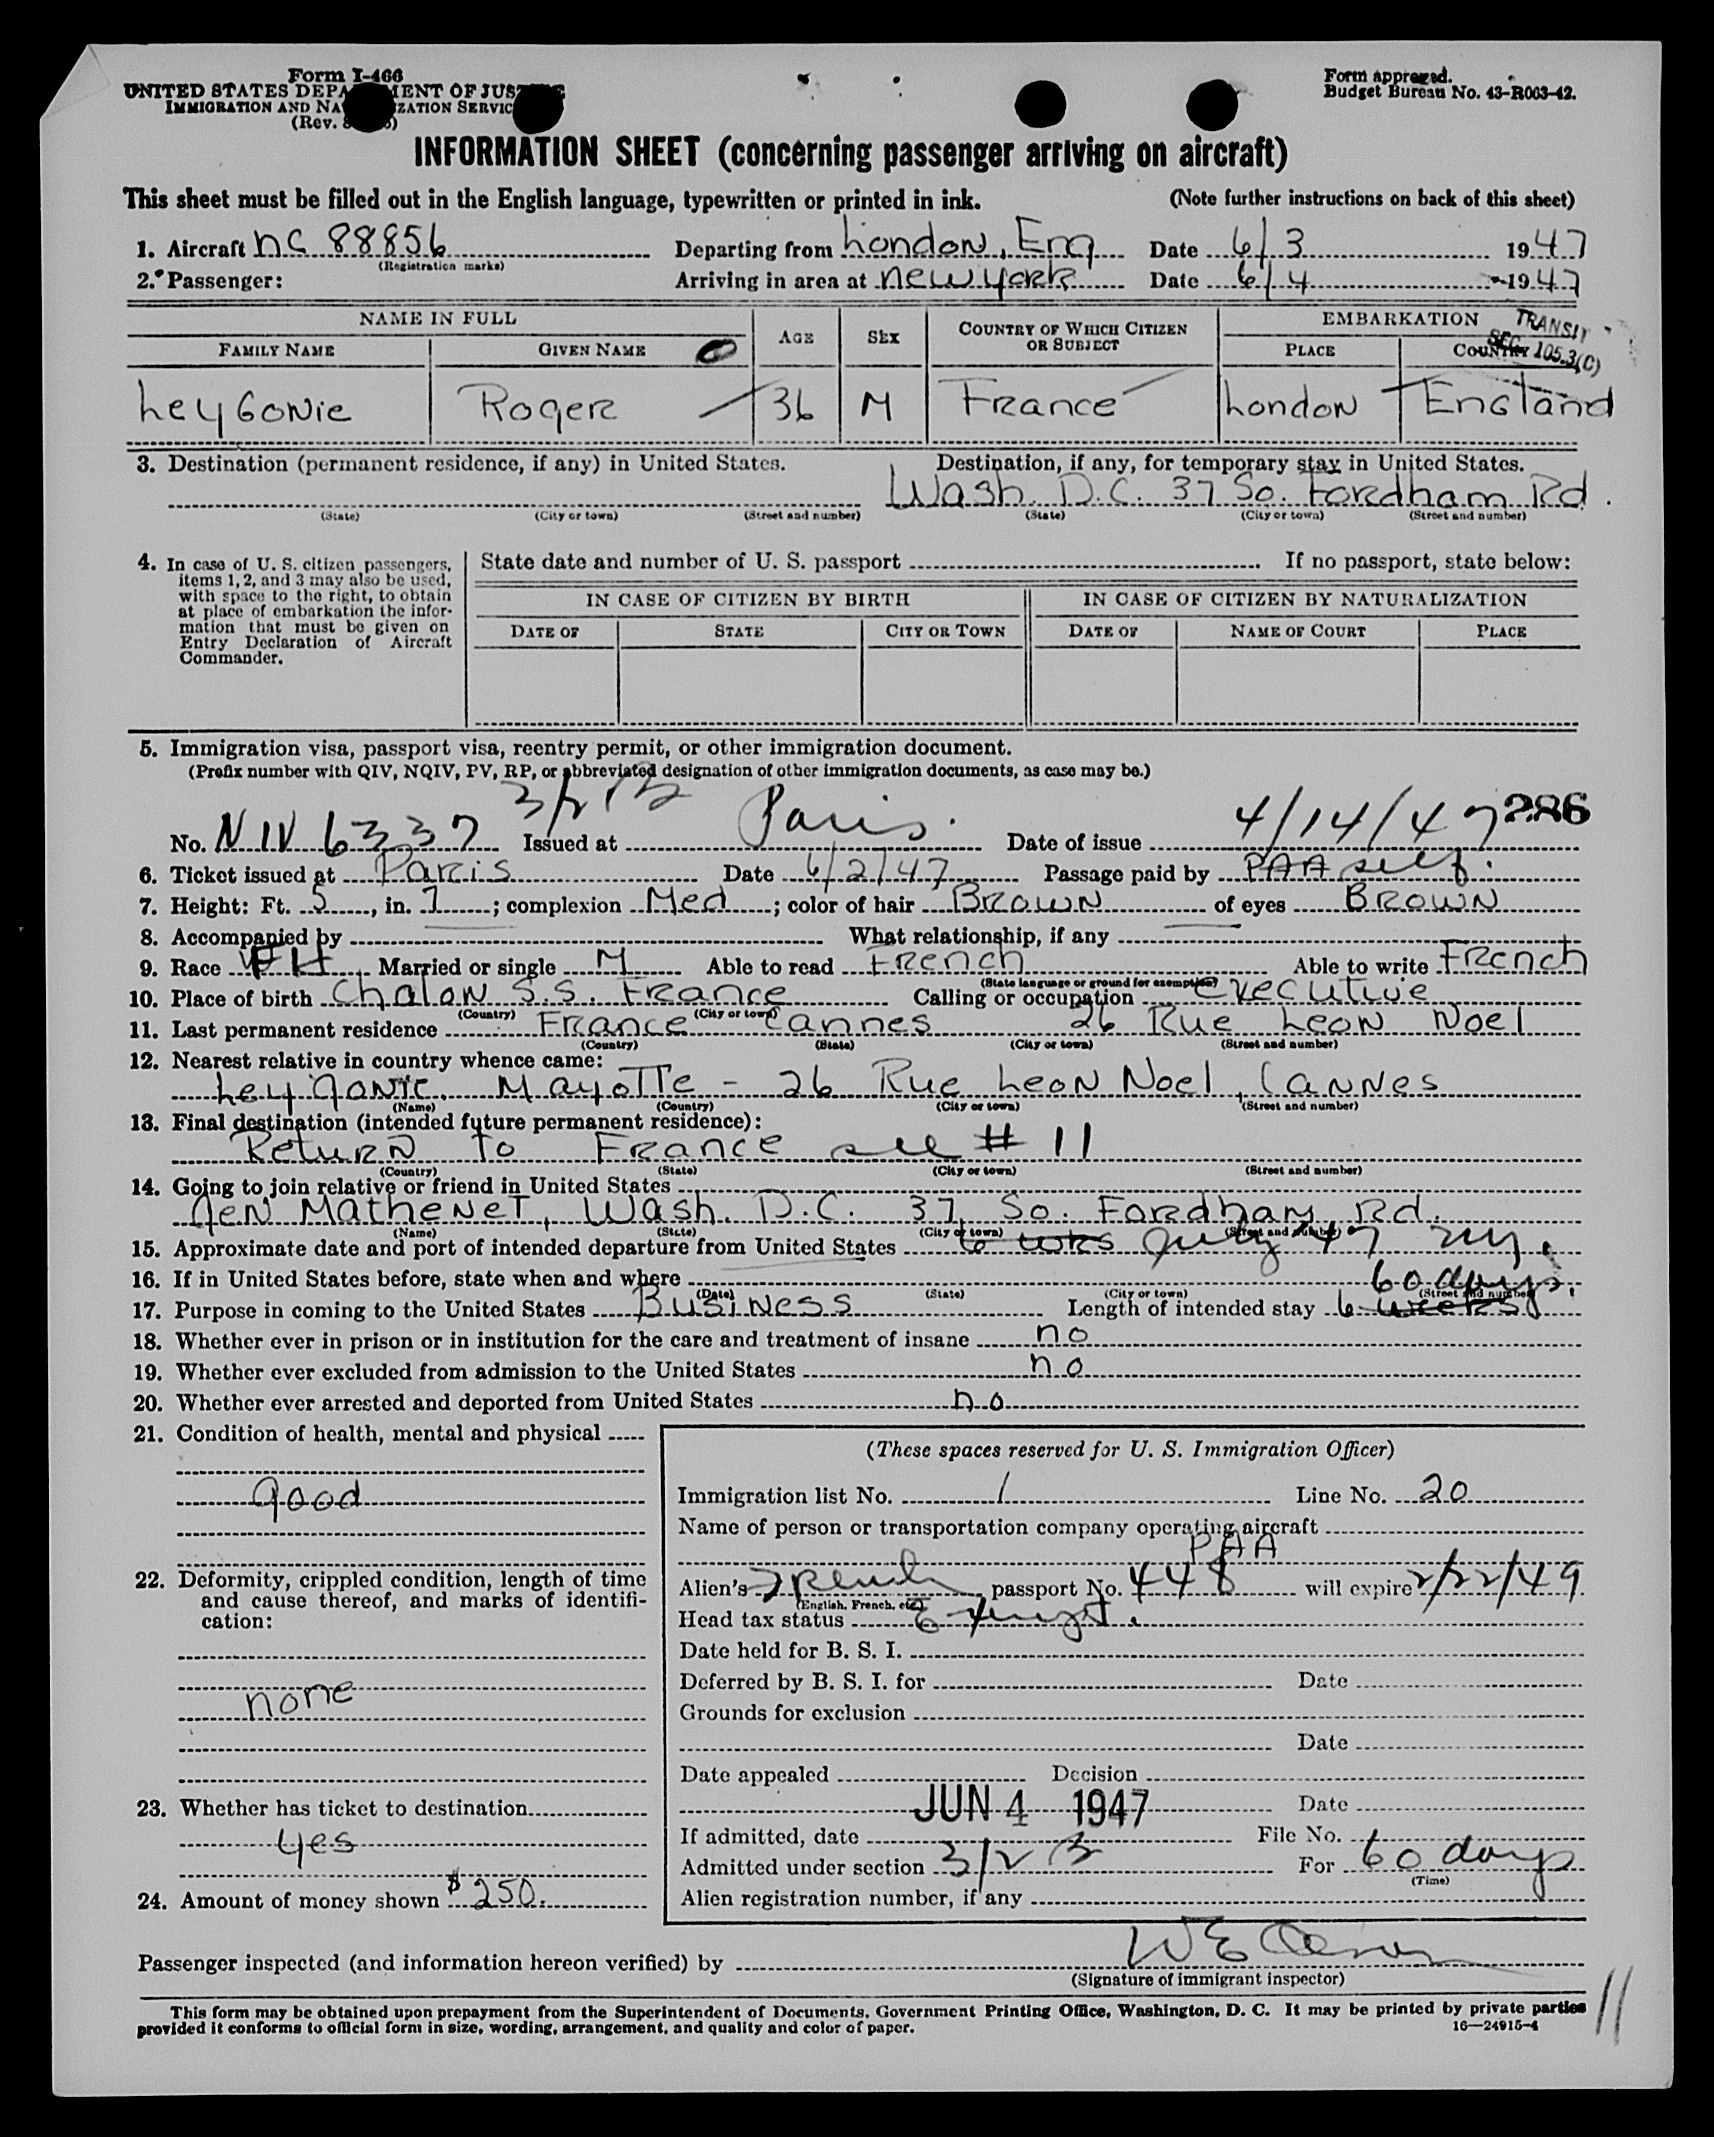 Form I-466
UNITED STATES DEPARTMENT OF JUSTICE
IMMIGRATION AND NATURALIZATION SERVICE
(Rev.
Form approved.
Budget Bureau No. 43-R003-42.
INFORMATION SHEET (concerning passenger arriving on aircraft)
This sheet must be filled out in the English language, typewritten or printed in ink. (Note further instructions on back of this sheet)
1. Aircraft NC 88856 Departing from London, Eng Date 6/3 1947
(Registration marks)
2. Passenger: Arriving in area at New York Date 6/4 1947
NAME IN FULL AGE SEX COUNTRY OF WHICH CITIZEN OR SUBJECT EMBARKATION
TRANSIT SEC. 105.3(C)
FAMILY NAME GIVEN NAME PLACE COUNTRY
Leygonie Roger 36 M France London England
3. Destination (permanent residence, if any) in United States. Destination, if any, for temporary stay in United States.
Wash. D.C. 37 So. Fordham Rd.
(State) (City or town) (Street and number) (State) (City or town) (Street and number)
4. In case of U. S. citizen passengers, items 1, 2, and 3 may also be used, with space to the right, to obtain at place of embarkation the information that must be given on Entry Declaration of Aircraft Commander.
State date and number of U. S. passport If no passport, state below:
IN CASE OF CITIZEN BY BIRTH IN CASE OF CITIZEN BY NATURALIZATION
DATE OF STATE CITY OR TOWN DATE OF NAME OF COURT PLACE
5. Immigration visa, passport visa, reentry permit, or other immigration document.
(Prefix number with QIV, NQIV, PV, RP, or abbreviated designation of other immigration documents, as case may be.)
3/2 B
286
No. NIV 6337 Issued at Paris. Date of issue 4/14/47
6. Ticket issued at Paris Date 6/2/47 Passage paid by PAA self.
7. Height: Ft. 5, in. 7; complexion Med; color of hair Brown of eyes Brown
8. Accompanied by What relationship, if any
9. Race FH Married or single M Able to read French Able to write French
(State language or ground for exemption)
10. Place of birth Chalon S.S. France Calling or occupation Executive
(Country) (City or town)
11. Last permanent residence France Cannes 26 Rue Leon Noel
(Country) (State) (City or town) (Street and number)
12. Nearest relative in country whence came:
Leygonie. Mayotte - 26 Rue Leon Noel, Cannes
(Name) (Country) (City or town) (Street and number)
13. Final destination (intended future permanent residence):
Return to France see # 11
(Country) (State) (City or town) (Street and number)
14. Going to join relative or friend in United States
Gen Mathenet, Wash. D.C. 37 So. Fordham Rd.
(Name) (State) (City or town) (Street and number)
15. Approximate date and port of intended departure from United States 6 wks July 47 NY.
16. If in United States before, state when and where
(Date) (State) (City or town) (Street and number)
60 days.
17. Purpose in coming to the United States Business Length of intended stay 6 weeks
18. Whether ever in prison or in institution for the care and treatment of insane no
19. Whether ever excluded from admission to the United States no
20. Whether ever arrested and deported from United States no
21. Condition of health, mental and physical
good
22. Deformity, crippled condition, length of time and cause thereof, and marks of identification:
none
23. Whether has ticket to destination
yes
24. Amount of money shown $250.
(These spaces reserved for U. S. Immigration Officer)
Immigration list No. 1 Line No. 20
Name of person or transportation company operating aircraft
PAA
Alien's French passport No. 448 will expire 2/22/49
(English, French, etc.)
Head tax status Exempt.
Date held for B. S. I.
Deferred by B. S. I. for Date
Grounds for exclusion
Date
Date appealed Decision
JUN 4 1947 Date
If admitted, date File No.
Admitted under section 3/2 B For 60 days
(Time)
Alien registration number, if any
Passenger inspected (and information hereon verified) by
(Signature of immigrant inspector)
This form may be obtained upon prepayment from the Superintendent of Documents, Government Printing Office, Washington, D. C. It may be printed by private parties
provided it conforms to official form in size, wording, arrangement, and quality and color of paper.
16—24915-4
11